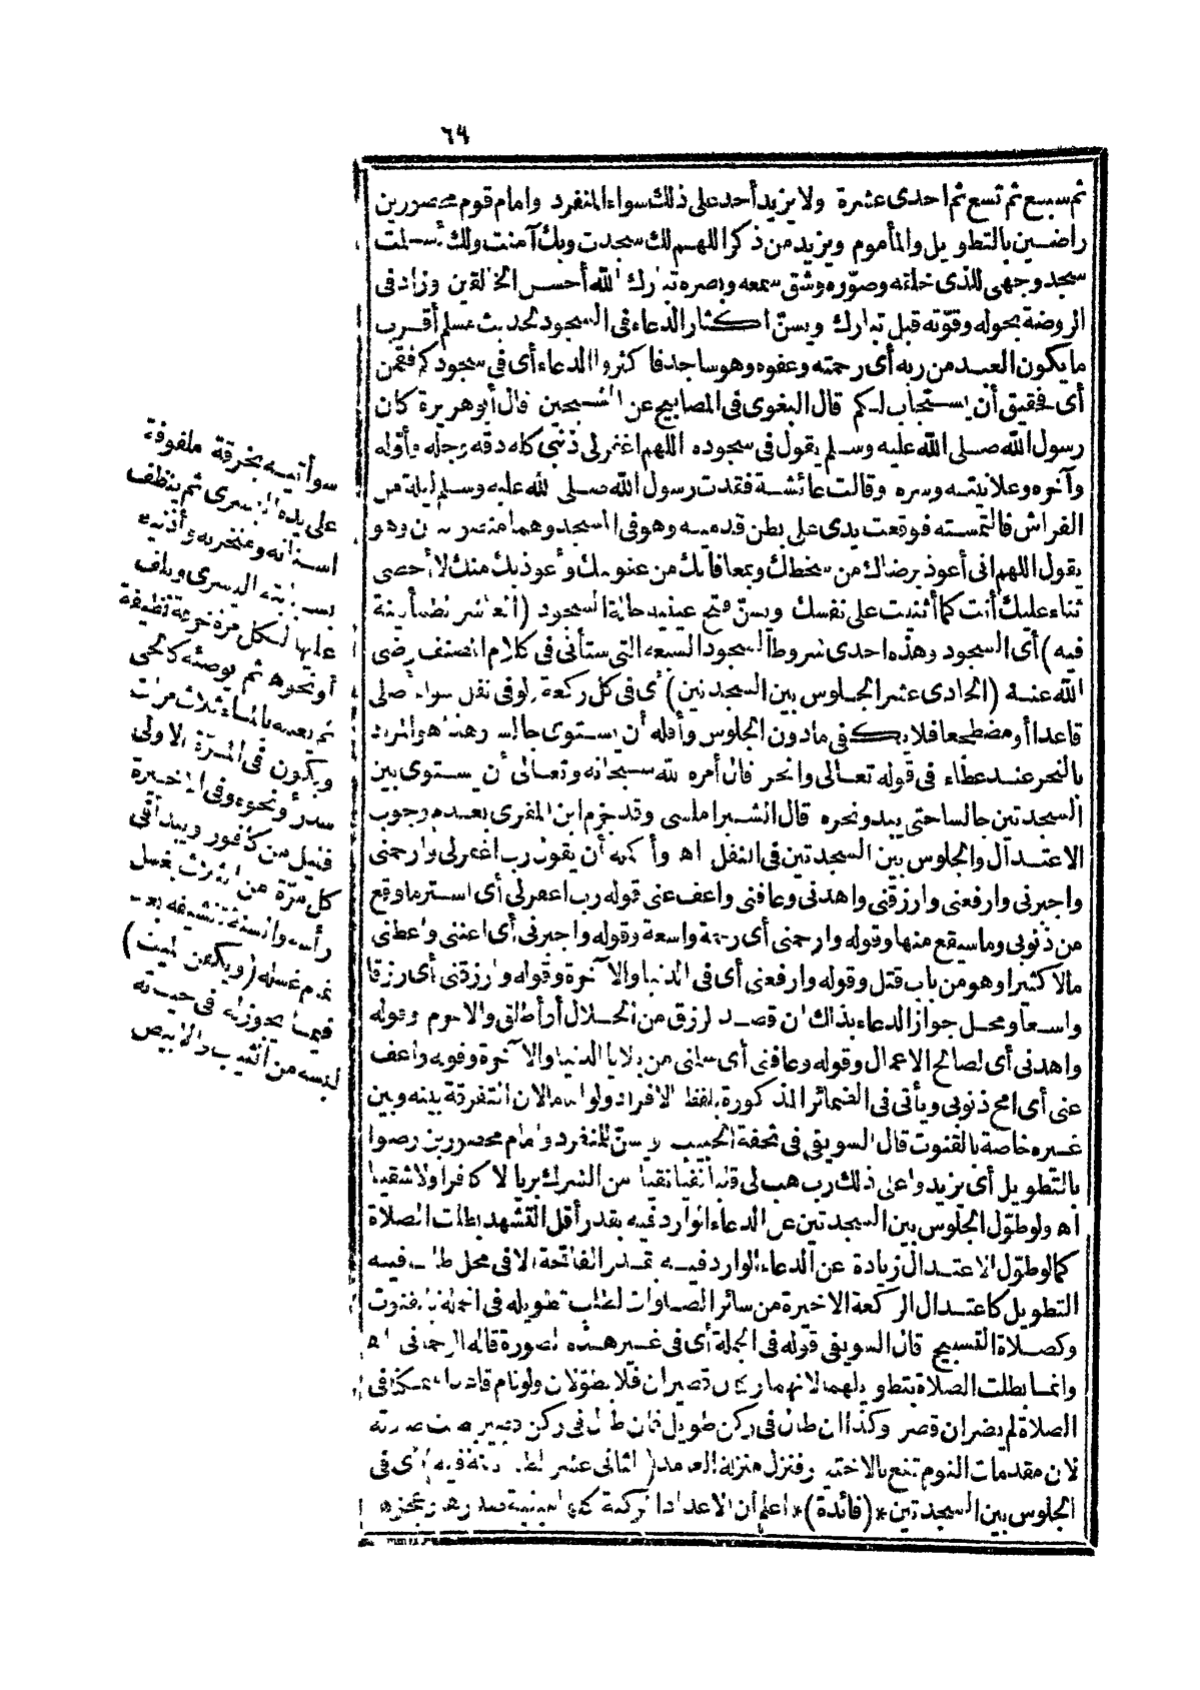 ٦٩
ثم سبع ثم تسع ثم احدى عشرة ولا يزيد أحد على ذلك سواء المنفرد وامام قوم محصورين
راضين بالتطويل والمأموم ويزيد من ذكر اللهم لك سجدت وبك آمنت ولك أسلمت
سجد وجهى للذى خلقه وصوّره وشق سمعه وبصره تبارك الله أحسن الخالقين وزاد فى
الروضة بحوله وقوّته قبل تبارك ويسنّ اكثار الدعاء فى السجود لحديث مسلم أقرب
ما يكون العبد من ربه أى رحمته وعفوه وهو ساجد فاكثروا الدعاء أى فى سجودكم فقمن
أى فحقيق أن يستجاب لكم قال البغوى فى المصابيح عن الشيخين قال أبو هريرة كان
رسول الله صلى الله عليه وسلم يقول فى سجوده اللهم اغفر لى ذنبى كله دقه وجله وأوّله
وآخره وعلانيته وسره وقالت عائشة فقدت رسول الله صلى الله عليه وسلم ليلة من
الفراش فالتمسته فوقعت يدى على بطن قدميه وهو فى المسجد وهما منصوبتان وهو
يقول اللهم انى أعوذ برضاك من سخطك وبمعافاتك من عقوبتك وأعوذ بك منك لا أحصى
ثناء عليك أنت كما أثنيت على نفسك ويسنّ فتح عينيه حالة السجود (العاشر الطمأنينة
فيه) أى السجود وهذه احدى شروط السجود السبعة التى ستأتى فى كلام المصنف رضى
الله عنه (الحادى عشر الجلوس بين السجدتين) أى فى كل ركعة ولو فى نفل سواء صلى
قاعدا أو مضطجعا فلا يكفى مادون الجلوس وأقله أن يستوى جالسا وهذا هو المراد
بالنحر عند عطاء فى قوله تعالى وانحر قال أمره الله سبحانه وتعالى أن يستوى بين
السجدتين جالسا حتى يبدو نحره قال الشبراملسى وقد جزم ابن المقرى بعدم وجوب
الاعتدال والجلوس بين السجدتين فى النفل اه وأكمله أن يقول رب اغفر لى وارحمنى
واجبرنى وارفعنى وارزقنى واهدنى وعافنى واعف عنى قوله رب اغفر لى أى استر ما وقع
من ذنوبى وما سيقع منها وقوله وارحمنى أى رحمة واسعة وقوله واجبرنى أى اغننى واعطنى
مالا كثيرا وهو من باب قتل وقوله وارفعنى أى فى الدنيا والآخرة وقوله وارزقنى أى رزقا
واسعا ومحل جواز الدعاء بذلك ان قصد الرزق من الحلال أو أطلق والا حرم وقوله
واهدنى أى لصالح الاعمال وقوله وعافنى أى سلمنى من بلايا الدنيا والآخرة وقوله واعف
عنى أى امح ذنوبى ويأتى فى الضمائر المذكورة بلفظ الافراد ولو اماما لان التفرقة بينه وبين
غيره خاصة بالقنوت قال السويفى فى تحفة الحبيب ويسنّ للمنفرد وامام محصورين رضوا
بالتطويل أى يزيدوا على ذلك رب هب لى قلبا تقيا نقيا من الشرك بريا لا كافرا ولا شقيا
اه ولو طوّل الجلوس بين السجدتين عن الدعاء الوارد فيه بقدر أقل التشهد بطلت الصلاة
كما لو طوّل الاعتدال زيادة عن الدعاء الوارد فيه بقدر الفاتحة الا فى محل طلب فيه
التطويل كاعتدال الركعة الاخيرة من سائر الصلوات لطلب تطويله فى الجملة بالقنوت
وكصلاة التسبيح قال السويفى قوله فى الجملة أى فى غير هذه الصورة قاله الرحمانى اه
وانما بطلت الصلاة بتطويلهما لانهما ركنان قصيران فلا يطولان ولو نام قاعدا متمكنا فى
الصلاة لم يضر ان قصر وكذا ان طال فى ركن طويل فان طال فى ركن قصير بطلت صلاته
لان مقدمات النوم تقع بالاختيار فنزل منزلة العامد (الثانى عشر الطمأنينة فيه) أى فى
الجلوس بين السجدتين *(فائدة)* اعلم أن الاعداد المركبة
سوأتيه بخرقة ملفوفة
على يده اليسرى ثم ينظف
اسنانه ومنخريه وأذنيه
بسبابته اليسرى ويلف
عليها لكل مرة خرقة نظيفة
أو نحوه ثم يوضئه كالحى
ثم يعمه بالماء ثلاث مرات
ويكون فى المرّة الاولى
سدر أو نحوه وفى الاخيرة
قليل من كافور ويبدأ فى
كل مرّة من الثلاث بغسل
رأسه والسنة تنشيفه بعد
تمام غسله (ويكفن الميت)
فيما يجوز له فى حياته
لبسه من الثياب والابيض